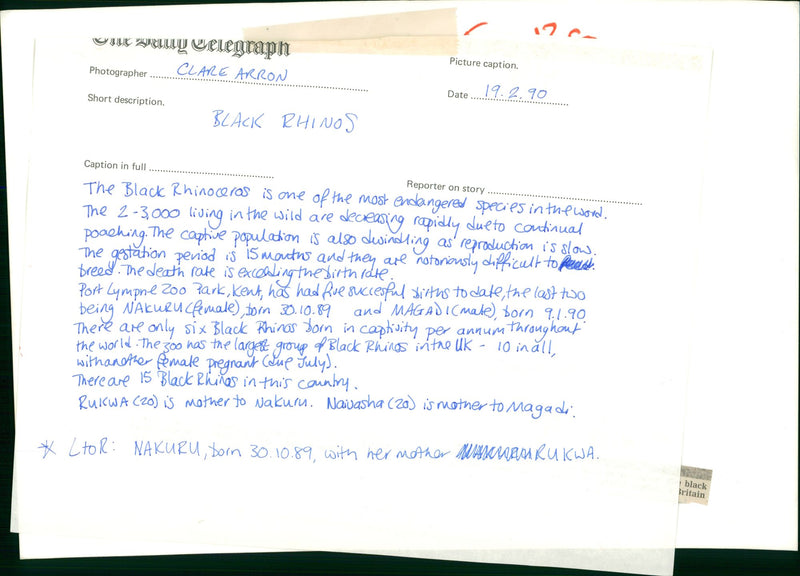 The Daily Telegraph
Photographer CLARE ARRON
Picture caption.
Date 19.2.90
Short description.
BLACK RHINOS
Caption in full
Reporter on story
The Black Rhinoceros is one of the most endangered species in the word.
The 2-3,000 living in the wild are decreasing rapidly due to continual
poaching. The captive population is also dwindling as reproduction is slow.
The gestation period is 15 months and they are notoriously difficult to
breed. The death rate is exceeding the birth rate.
Port Lympne Zoo Park, Kent, has had five succesful births to date, the last two
being NAKURU (female), born 30.10.89 and MAGADI (male), born 9.1.90
There are only six Black Rhinos born in captivity per annum throughout
the world. The zoo has the largest group of Black Rhinos in the UK - 10 in all,
with another female pregnant (due July).
There are 15 Black Rhinos in this country.
RUKWA (20) is mother to Nakuru. Naivasha (20) is mother to Magadi.
* L to R: NAKURU, born 30.10.89, with her mother RUKWA.
black
Britain